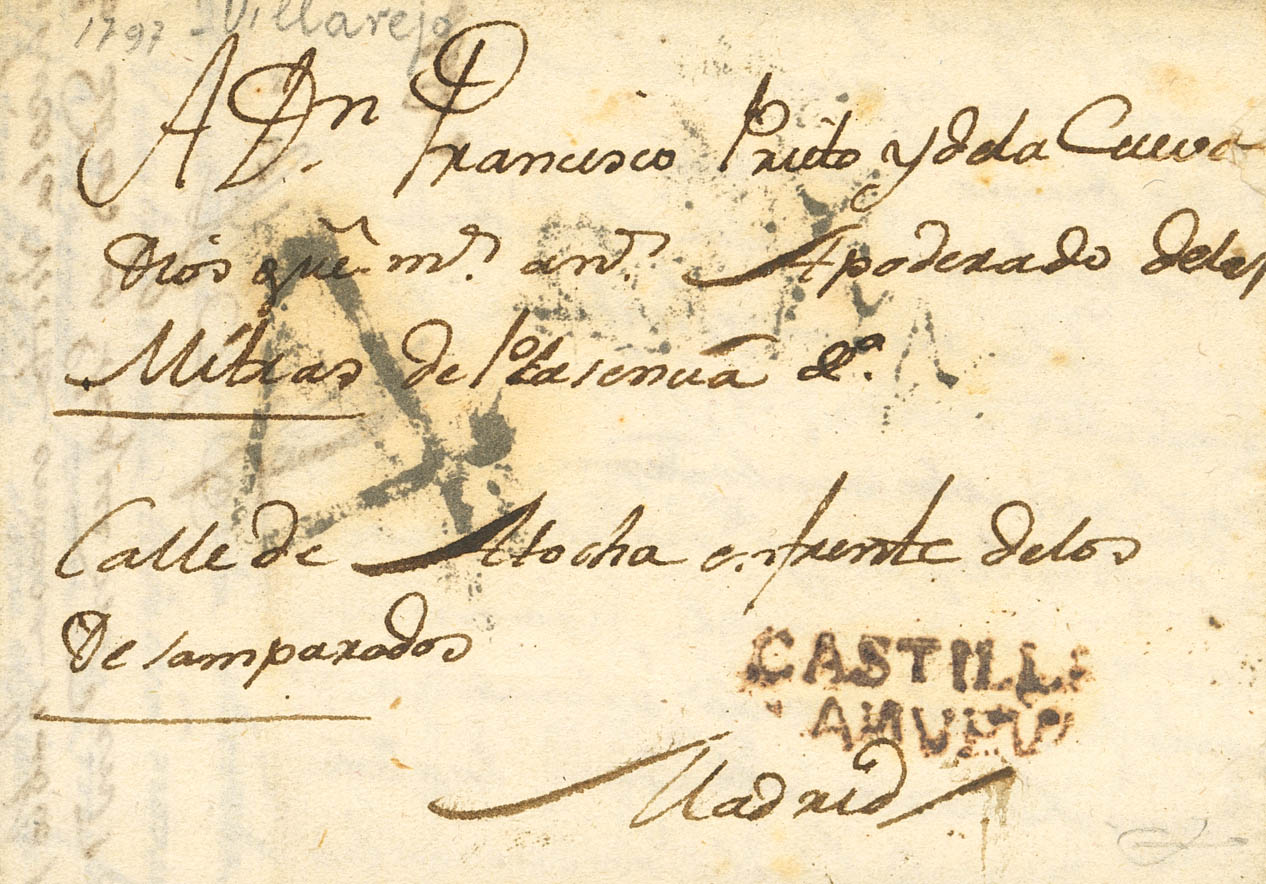 1797 Villarejo
A Dn. Francisco Prieto y de la Cueva
Dios gue. ms. ans. Apoderado de las
Mitras de Plasencia &a.
Calle de Atocha enfrente de los
Desamparados
CASTILLA
Madrid